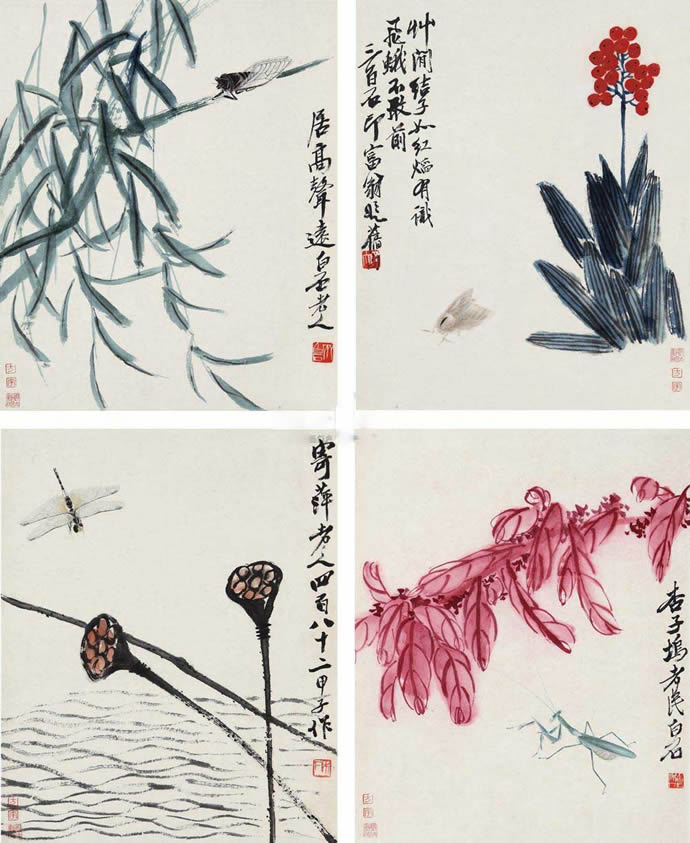 居高聲遠白石老人
艸間結子如紅熖有識
飛蛾不敢前
三百石印富翁題舊
寄萍老人四百八十二甲子作
杏子塢老民白石